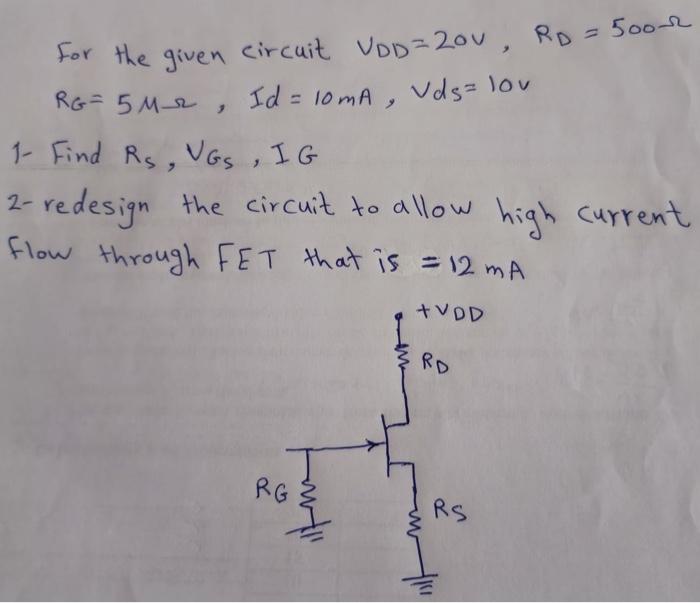 For the given circuit VDD=20V, RD = 500Ω
RG= 5MΩ, Id = 10mA, Vds= 10V
1- Find Rs, VGs, IG
2- redesign the circuit to allow high current
flow through FET that is = 12 mA
+VDD
RD
RG
RS